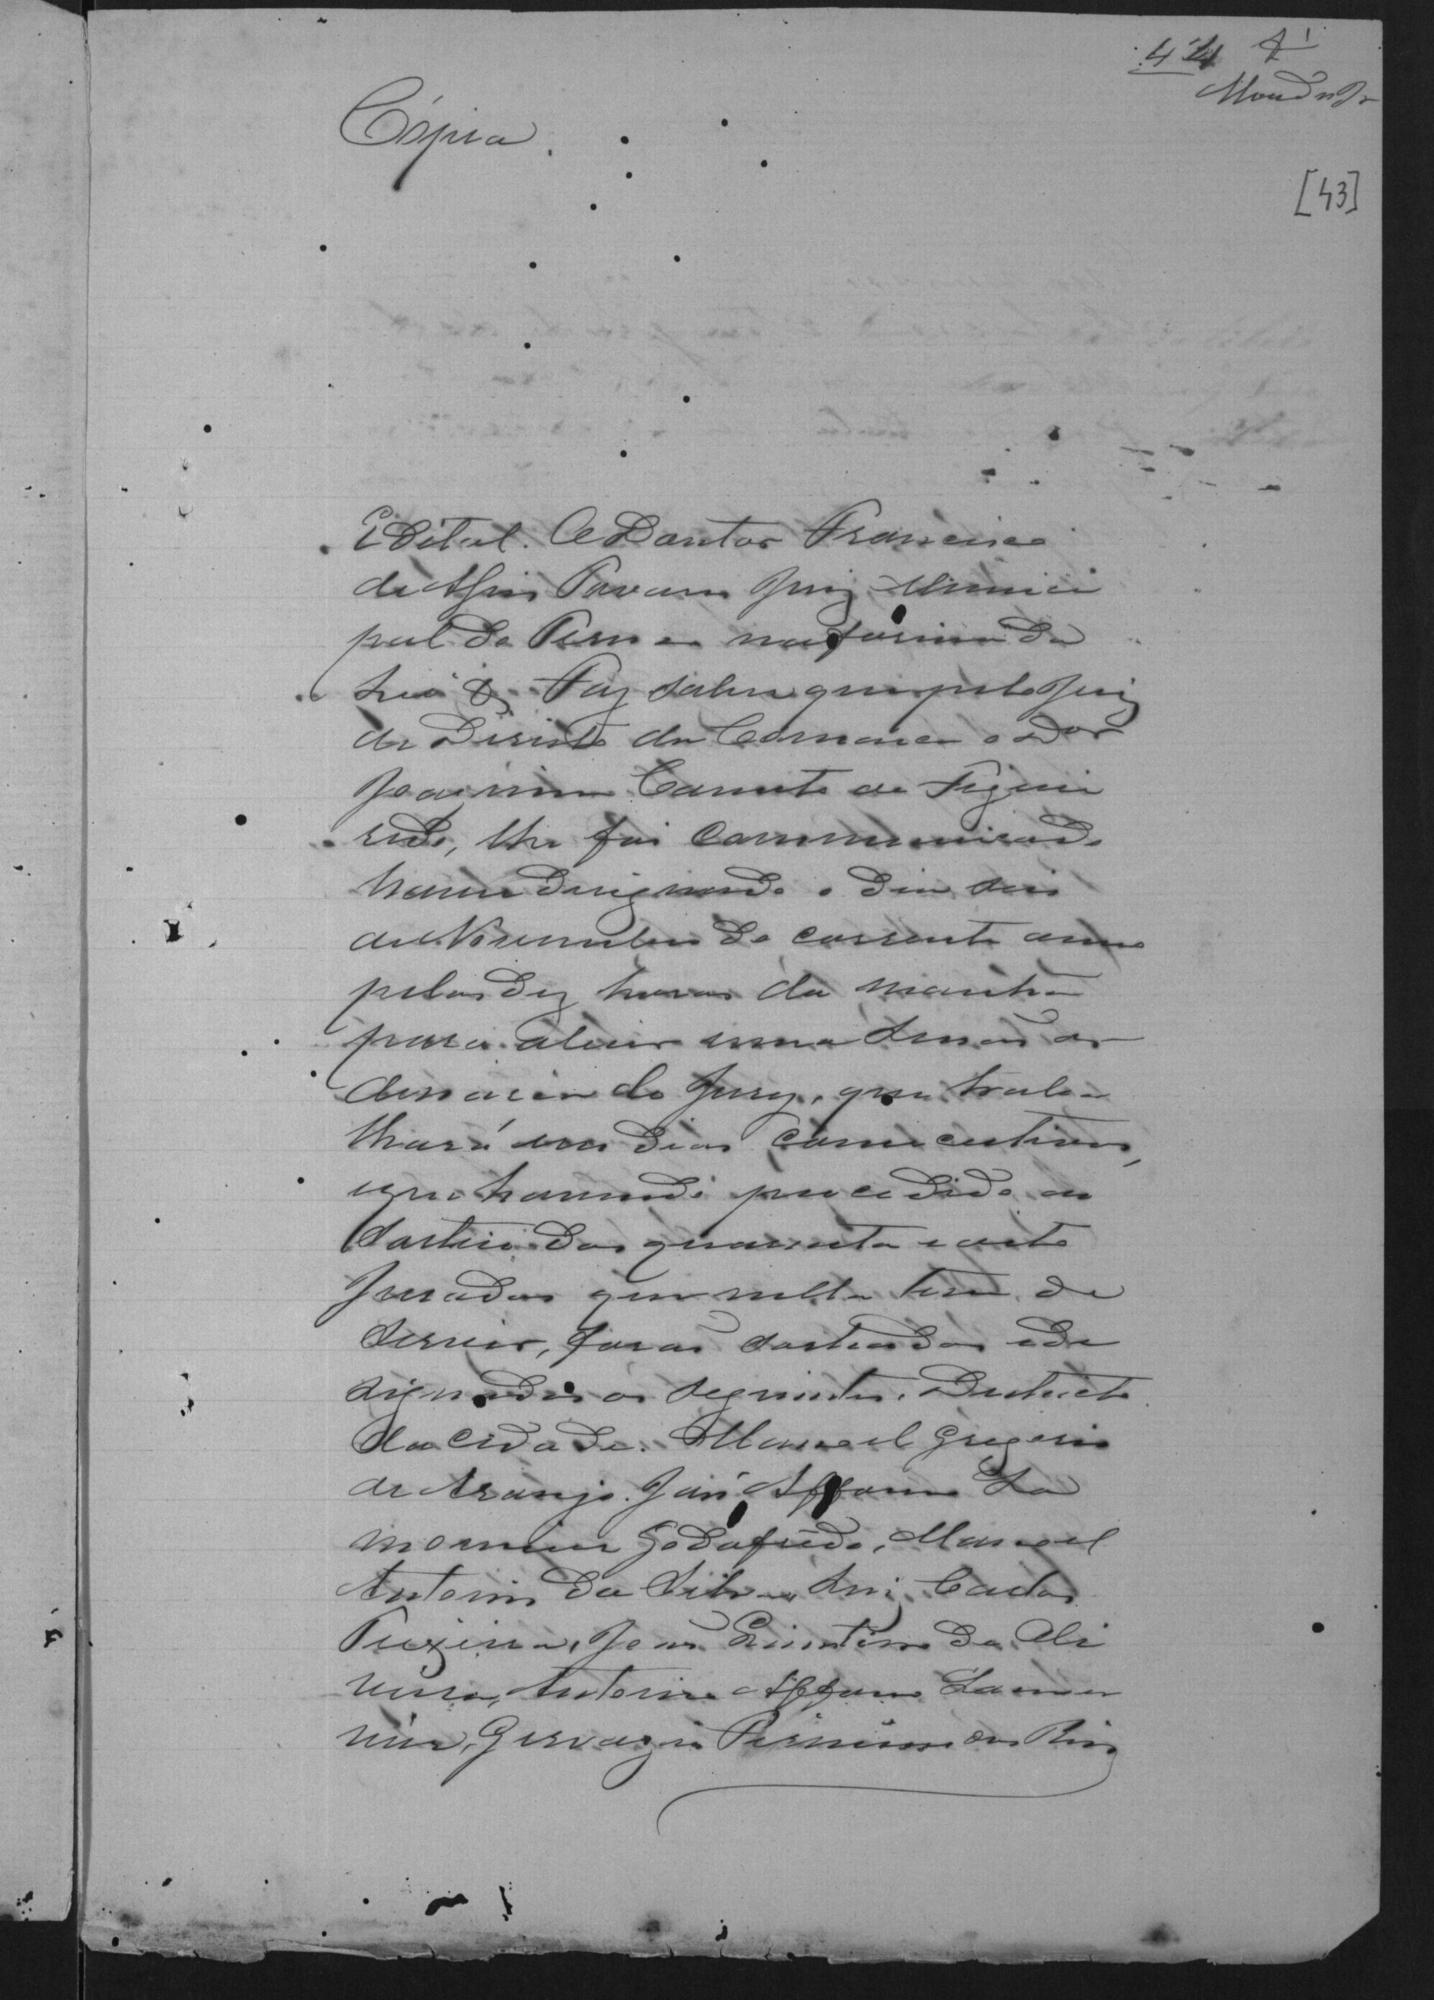 44
[43]
Cópia.
Edital. O Doutor Francisco
de Assis Pavam Juiz Munici
pal do Termo na forma da
Lei &. Faz saber que pelo Juiz
de Direito da Comarca o Dor
Joaquim Canuto de Figuei
redo, lhe foi communicado
haver designado o dia seis
de Novembro do corrente anno
pelas dez horas da manhã
para abrir uma sessão or
dinaria do Jury, que traba
lhará em dias consecutivos,
e que havendo procedido ao
sorteio dos quarenta e oito
Jurados que nella tem de
servir, forão sorteados e de
signados os seguintes. Districto
da cidade. Manoel Gregorio
de Araujo. José Affonso La
mounier Godofredo, Manoel
Antonio da Silva, Luiz Carlos
Teixeira, João Quintino de Oli
veira, Antonio Affonso Lamou
nier, Gervazio Pirminio dos Reis